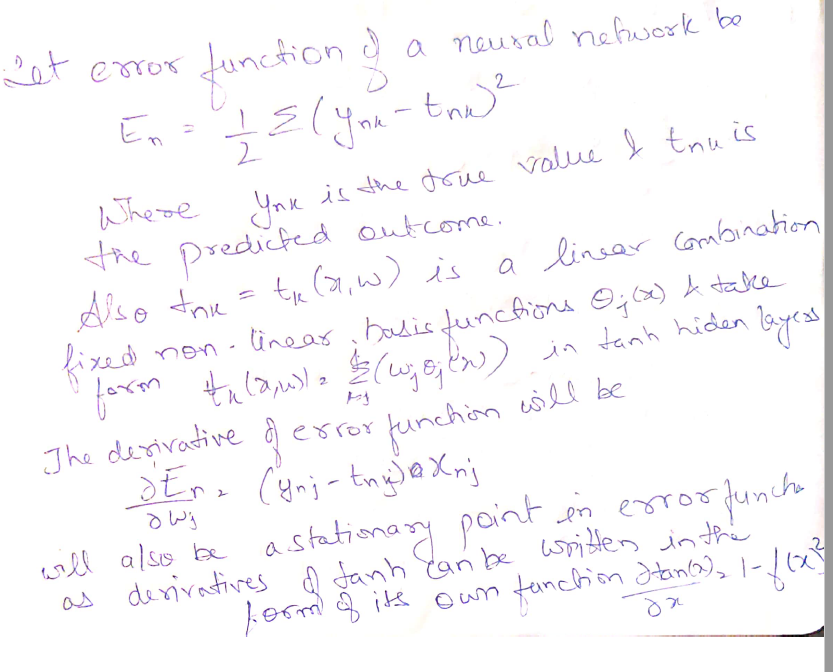 Let error function of a neural network be
En = 1/2 Σ(ynk - tnk)²
Where ynk is the true value & tnk is
the predicted outcome.
Also tnk = tk(x,w) is a linear combination
fixed non-linear basis functions θj(x) & take
form tk(x,w) = Σ(wjθj(x)) in tanh hiden layers
The derivative of error function will be
∂En/∂wj = (ynj - tnj) xnj
will also be a stationary point in error functio
as derivatives of tanh can be written in the
form of its own function ∂tan(x)/∂x = 1-f(x²